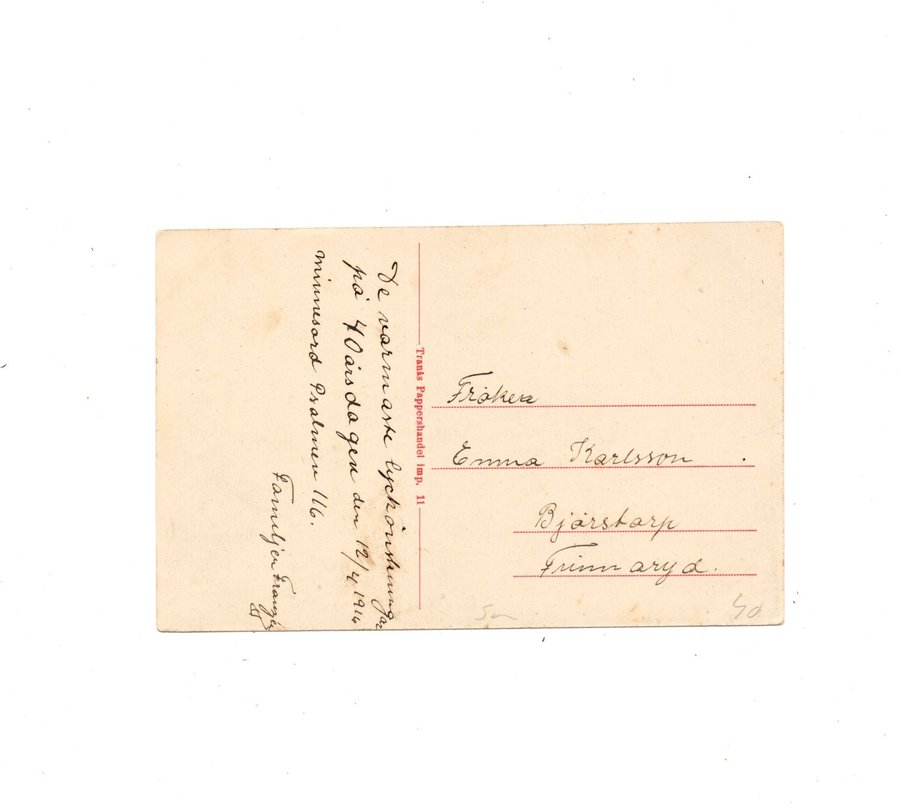 De varmaste lyckönskningar
på 40 årsdagen den 12/4 1916
minnesord Psalmen 116.
Familjen
Tranås Pappershandel Imp. 11
Fröken
Emma Karlsson
Björstorp
Frinnaryd.
40